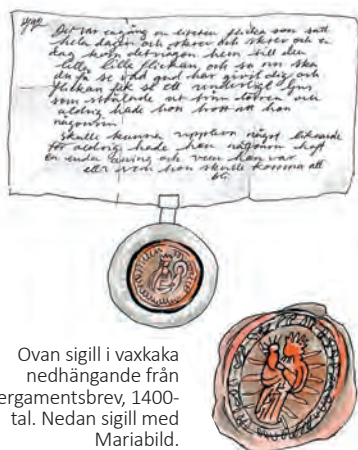 Det var en gång en liten flicka som satt
hela dagen och skrev och skrev och en
dag kom det någon hem till den
lilla lilla flickan och sa nu ska
du få se vad gud har givit dig och
flickan fick se ett underligt ljus
som strålade
aldrig hade hon trott att hon
någonsin
skulle kunna uppleva något liknande
för aldrig hade hon någonsin haft
en enda aning och vem hon var
eller vem hon skulle komma att
bli
Ovan sigill i vaxkaka
nedhängande från
ergamentsbrev, 1400-
tal. Nedan sigill med
Mariabild.